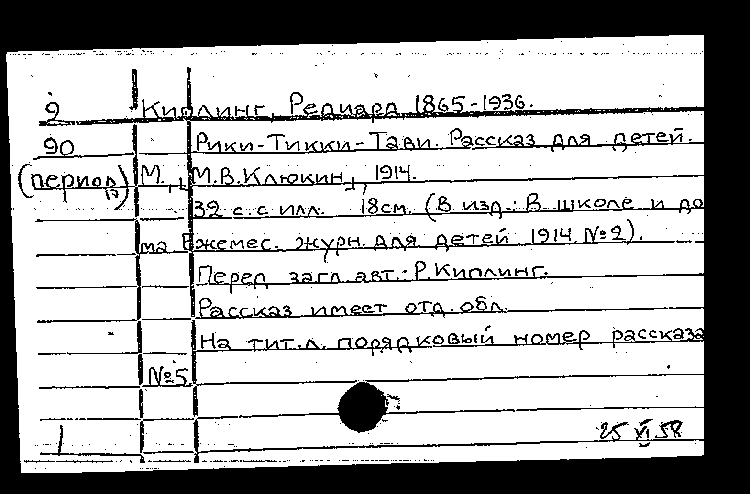 2 Киплинг, Редиард, 1865-1936.
90 Рики-Тикки-Тави. Рассказ для детей.
(период) М., М.В.Клюкин, 1914.
32 с. с илл. 18см. (В изд.: В школе и до
ма Ежемес. журн. для детей 1914 №2).
Перед загл. авт.: Р.Киплинг.
Рассказ имеет отд. обл.
На тит.л. порядковый номер рассказа
№5
1 25 XI 58